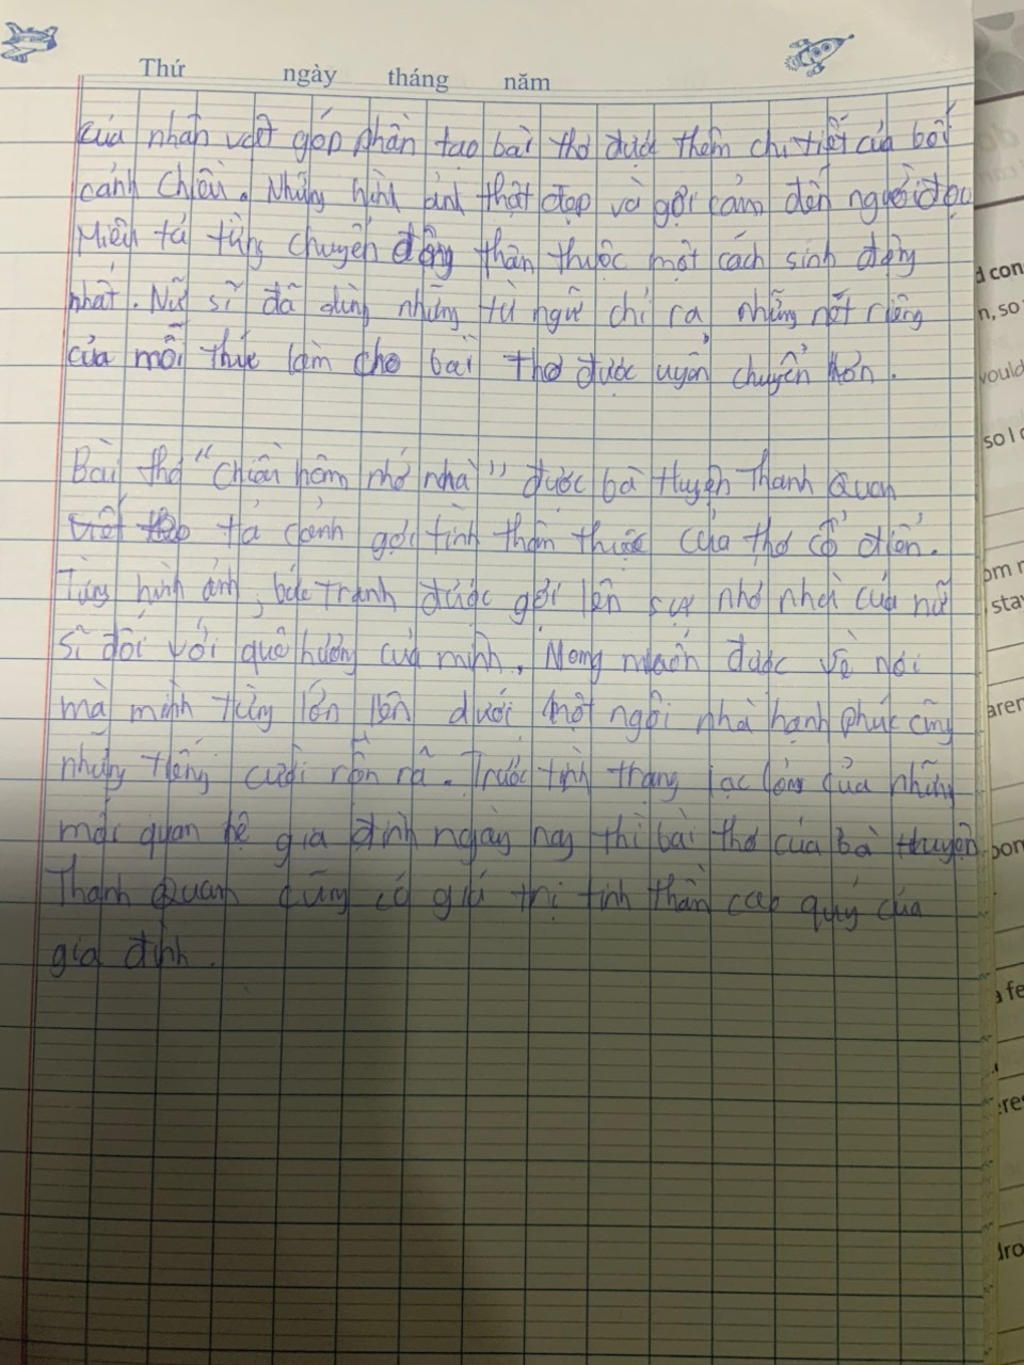 Thứ ngày tháng năm
của nhân vật góp phần tạo bài thơ được thêm chi tiết của bối
cảnh Chiều. Những hình ảnh thật đẹp và gợi cảm đến người đọc
Miêu tả từng chuyển động thân thuộc một cách sinh động
nhất. Nữ sĩ đã dùng những từ ngữ chỉ ra những nét riêng
của mỗi thức làm cho bài thơ được uyển chuyển hơn.
Bài thơ "Chiều hôm nhớ nhà" được bà Huyện Thanh Quan
tả cảnh gợi tình thân thuộc của thơ cổ điển.
Từng hình ảnh, bức tranh được gợi lên sự nhớ nhà của nữ
sĩ đối với quê hương của mình. Mong muốn được về nơi
mà mình từng lớn lên dưới một ngôi nhà hạnh phúc cùng
những tiếng cười rôn rã. Trước tình trạng lạc lõng của những
mối quan hệ gia đình ngày nay thì bài thơ của bà Huyện
Thanh Quan cũng có giá trị tinh thần cao quý của
gia đình.
d con
n, so
would
so I
om
sta
aren
pon
a fe
ere
dro